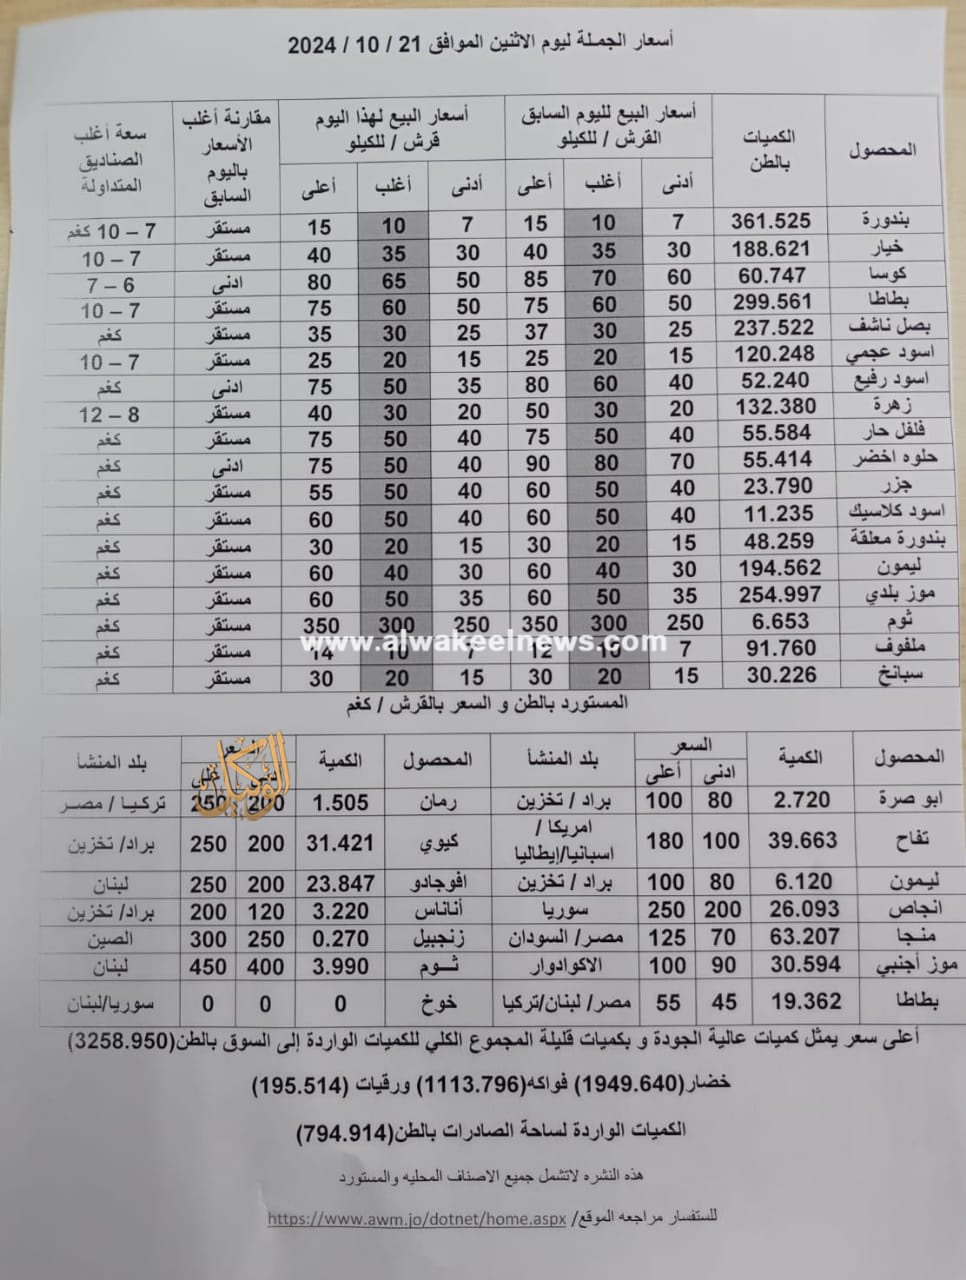 أسعار الجملة ليوم الاثنين الموافق 21 / 10 / 2024
المحصول الكميات بالطن أسعار البيع لليوم السابق القرش / للكيلو أسعار البيع لهذا اليوم قرش / للكيلو مقارنة أغلب الأسعار باليوم السابق سعة أغلب الصناديق المتداولة
أدنى أغلب أعلى أدنى أغلب أعلى
بندورة 361.525 7 10 15 7 10 15 مستقر 7 – 10 كغم
خيار 188.621 30 35 40 30 35 40 مستقر 7 – 10
كوسا 60.747 60 70 85 50 65 80 ادنى 6 – 7
بطاطا 299.561 50 60 75 50 60 75 مستقر 7 – 10
بصل ناشف 237.522 25 30 37 25 30 35 مستقر كغم
اسود عجمي 120.248 15 20 25 15 20 25 مستقر 7 – 10
اسود رفيع 52.240 40 60 80 35 50 75 ادنى كغم
زهرة 132.380 20 30 50 20 30 40 مستقر 8 – 12
فلفل حار 55.584 40 50 75 40 50 75 مستقر كغم
حلوه اخضر 55.414 70 80 90 40 50 75 ادنى كغم
جزر 23.790 40 50 60 40 50 55 مستقر كغم
اسود كلاسيك 11.235 40 50 60 40 50 60 مستقر كغم
بندورة معلقة 48.259 15 20 30 15 20 30 مستقر كغم
ليمون 194.562 30 40 60 30 40 60 مستقر كغم
موز بلدي 254.997 35 50 60 35 50 60 مستقر كغم
ثوم 6.653 250 300 350 250 300 350 مستقر كغم
www.alwakeelnews.com
ملفوف 91.760 7 10 12 7 10 14 مستقر كغم
سبانخ 30.226 15 20 30 15 20 30 مستقر كغم
المستورد بالطن و السعر بالقرش / كغم
المحصول الكمية السعر بلد المنشأ المحصول الكمية السعر بلد المنشأ
ادنى أعلى أدنى أعلى
الوكيل
ابو صرة 2.720 80 100 براد / تخزين رمان 1.505 200 250 تركيا / مصر
تفاح 39.663 100 180 امريكا / اسبانيا/إيطاليا كيوي 31.421 200 250 براد/ تخزين
ليمون 6.120 80 100 براد / تخزين افوجادو 23.847 200 250 لبنان
انجاص 26.093 200 250 سوريا أناناس 3.220 120 200 براد/ تخزين
منجا 63.207 70 125 مصر/ السودان زنجبيل 0.270 250 300 الصين
موز أجنبي 30.594 90 100 الاكوادوار ثوم 3.990 400 450 لبنان
بطاطا 19.362 45 55 مصر/ لبنان/تركيا خوخ 0 0 0 سوريا/لبنان
أعلى سعر يمثل كميات عالية الجودة و بكميات قليلة المجموع الكلي للكميات الواردة إلى السوق بالطن(3258.950)
خضار(1949.640) فواكه(1113.796) ورقيات (195.514)
الكميات الواردة لساحة الصادرات بالطن(794.914)
هذه النشره لاتشمل جميع الاصناف المحليه والمستورد
للستفسار مراجعه الموقع/ https://www.awm.jo/dotnet/home.aspx